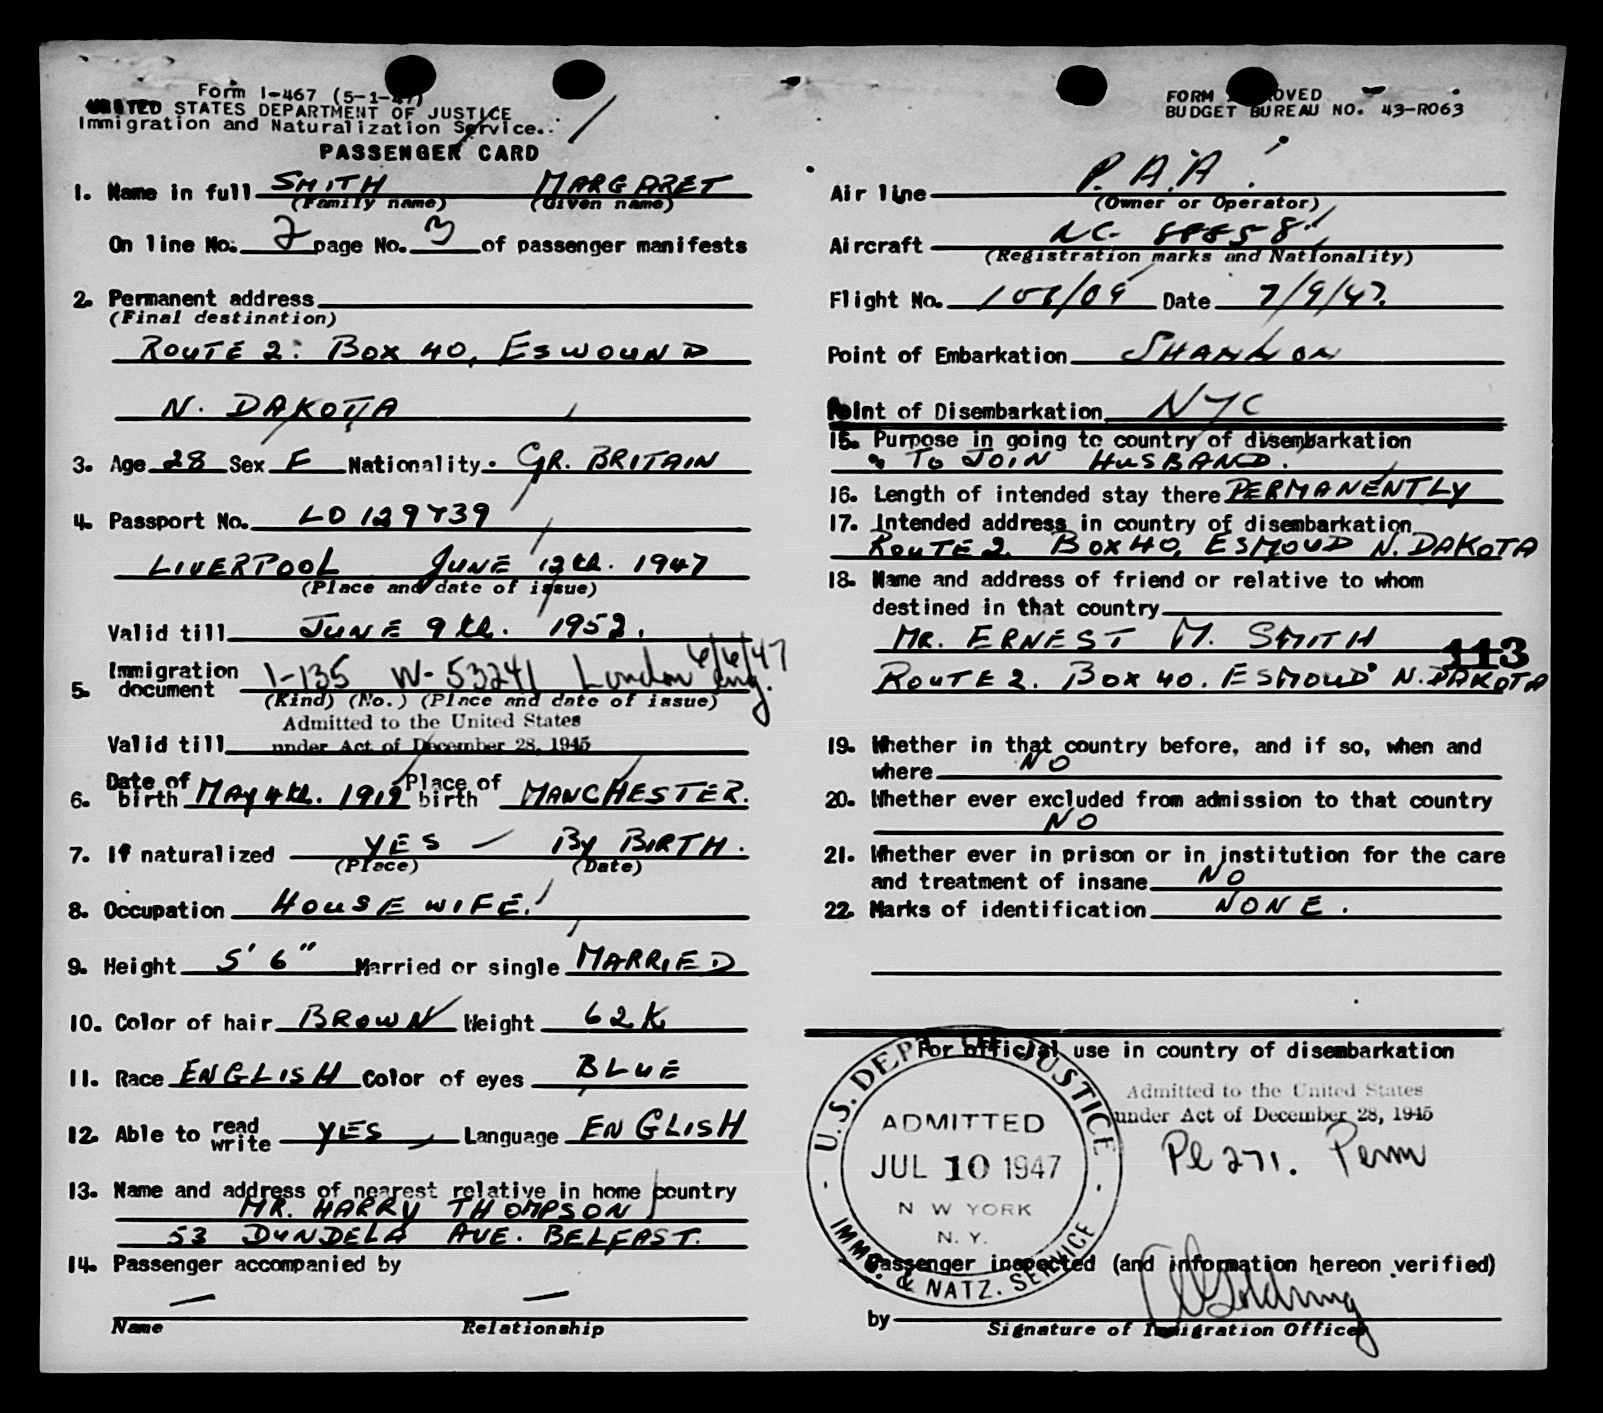 Form I-467 (5-1-47)
UNITED STATES DEPARTMENT OF JUSTICE
Immigration and Naturalization Service.
PASSENGER CARD
FORM APPROVED
BUDGET BUREAU NO. 43-R063
1. Name in full SMITH MARGARET
(Family name) (Given name)
On line No. 2 page No. 3 of passenger manifests
2. Permanent address
(Final destination)
ROUTE 2. BOX 40, ESWOUND
N. DAKOTA
3. Age 28 Sex F Nationality. GR. BRITAIN
4. Passport No. LO 129739
LIVERPOOL JUNE 12th. 1947
(Place and date of issue)
Valid till JUNE 9th. 1952.
Immigration
5. document I-135 W-53241 London Eng. 6/6/47
(Kind) (No.) (Place and date of issue)
Admitted to the United States
Valid till under Act of December 28, 1945
6. Date of birth MAY 4th. 1919 Place of birth MANCHESTER.
7. If naturalized YES — By BIRTH.
(Place) (Date)
8. Occupation HOUSEWIFE.
9. Height 5' 6" Married or single MARRIED
10. Color of hair BROWN Weight 62K
11. Race ENGLISH Color of eyes BLUE
12. Able to read write YES Language ENGLISH
13. Name and address of nearest relative in home country
MR. HARRY THOMPSON
53 DUNDELA AVE. BELFAST.
14. Passenger accompanied by
— —
Name Relationship
Air line P.A.A.
(Owner or Operator)
Aircraft NC- 88858
(Registration marks and Nationality)
Flight No. /09 Date 7/9/47.
Point of Embarkation SHANNON
Point of Disembarkation NYC
15. Purpose in going to country of disembarkation
TO JOIN HUSBAND.
16. Length of intended stay there PERMANENTLY
17. Intended address in country of disembarkation
ROUTE 2. BOX 40, ESMOUD N. DAKOTA
18. Name and address of friend or relative to whom
destined in that country
MR. ERNEST M. SMITH
113
ROUTE 2. BOX 40. ESMOUD N. DAKOTA
19. Whether in that country before, and if so, when and
where NO
20. Whether ever excluded from admission to that country
NO
21. Whether ever in prison or in institution for the care
and treatment of insane NO
22. Marks of identification NONE.
For official use in country of disembarkation
U.S. DEPT. OF JUSTICE
ADMITTED
JUL 10 1947
N W YORK
N. Y.
IMMG. & NATZ. SERVICE
Admitted to the United States
under Act of December 28, 1945
PL 271. Perm
Passenger inspected (and information hereon verified)
by
Signature of Immigration Officer